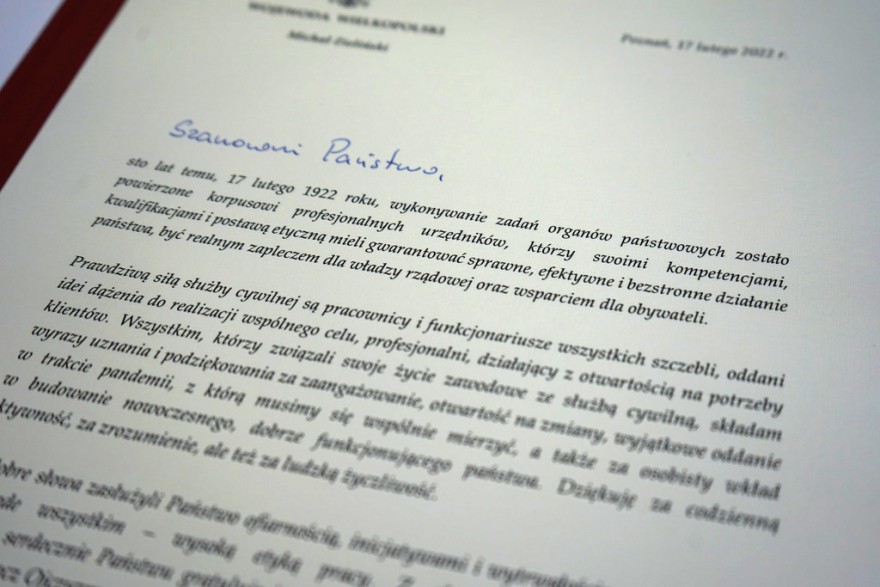 WOJEWODA WIELKOPOLSKI
Michał Zieliński
Poznań, 17 lutego 2022 r.
Szanowni Państwo,
sto lat temu, 17 lutego 1922 roku, wykonywanie zadań organów państwowych zostało
powierzone korpusowi profesjonalnych urzędników, którzy swoimi kompetencjami,
kwalifikacjami i postawą etyczną mieli gwarantować sprawne, efektywne i bezstronne działanie
państwa, być realnym zapleczem dla władzy rządowej oraz wsparciem dla obywateli.
Prawdziwą siłą służby cywilnej są pracownicy i funkcjonariusze wszystkich szczebli, oddani
idei dążenia do realizacji wspólnego celu, profesjonalni, działający z otwartością na potrzeby
klientów. Wszystkim, którzy związali swoje życie zawodowe ze służbą cywilną, składam
wyrazy uznania i podziękowania za zaangażowanie, otwartość na zmiany, wyjątkowe oddanie
w trakcie pandemii, z którą musimy się wspólnie mierzyć, a także za osobisty wkład
w budowanie nowoczesnego, dobrze funkcjonującego państwa. Dziękuję za codzienną
za zrozumienie, ale też za ludzką życzliwość.
słowa zasłużyli Państwo ofiarnością, inicjatywami i
wszystkim – wysoką etyką pracy.
serdecznie Państwu